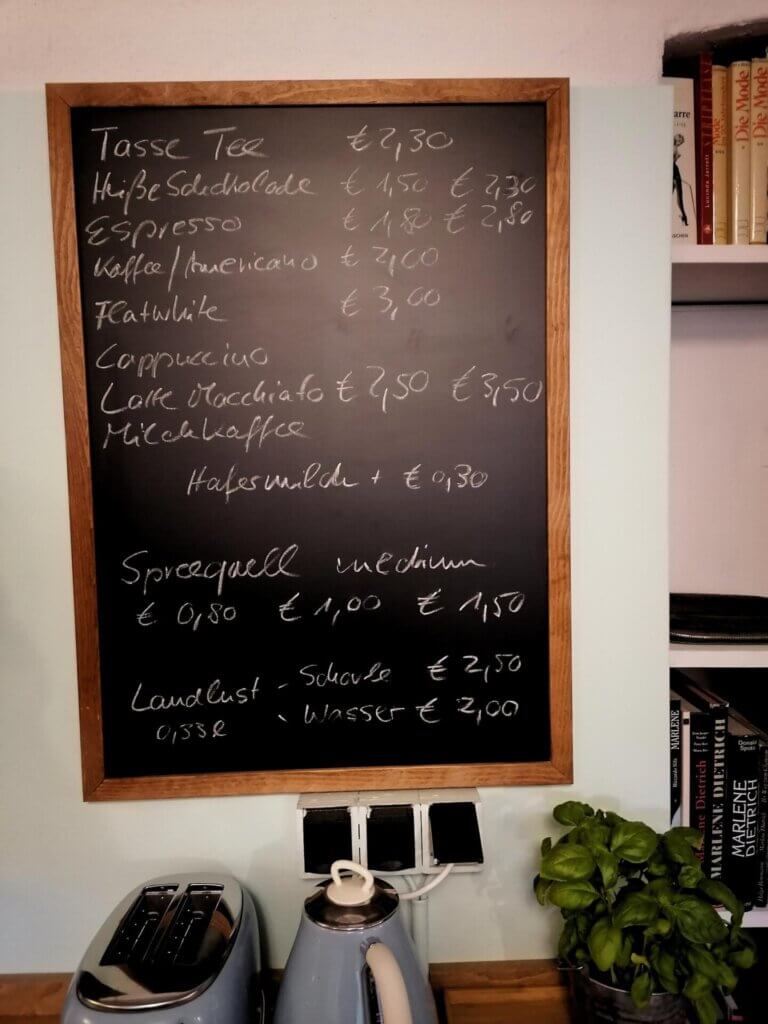 Tasse Tee € 2,30
Heiße Schokolade € 1,50 € 2,30
Espresso € 1,80 € 2,80
Kaffee/Americano € 2,00
Flatwhite € 3,00
Cappuccino
Latte Macchiato € 2,50 € 3,50
Milchkaffee
Hafermilch + € 0,30
Spreequell medium
€ 0,80 € 1,00 € 1,50
Landlust - Schorle € 2,50
0,33l - Wasser € 2,00
Lucinda Jarrett
STRIPTEASE
Mode
Die Mode
Die Mode
MARLENE
Marlene Dietrich
MARLENE DIETRICH
Donald Spoto
MARLENE DIETRICH